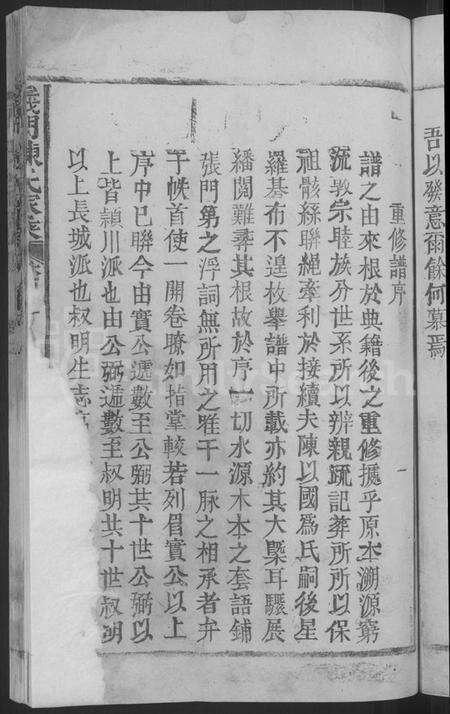 吾以發意爾餘何慕焉
重修譜序
譜之由來根於典籍後之重修攄乎原本溯源窮
流敦宗睦族分世系所以辨親疏記葬所所以保
祖骸絲聯繩牽利於接續夫陳以國爲氏嗣後星
羅基布不遑枚舉譜中所載亦約其大槩耳驟展
繙閱難尋其根故於序一切水源木本之套語鋪
張門第之浮詞無所用之唯于一脉之相承者弁
于帙首使一開卷瞭如指掌較若列眉實公以上
序中已聯今由實公遞數至公弼共十世公弼以
上皆潁川派也由公弼遞數至叔明共十世叔明
以上長城派也叔明生志
義門陳氏家乘